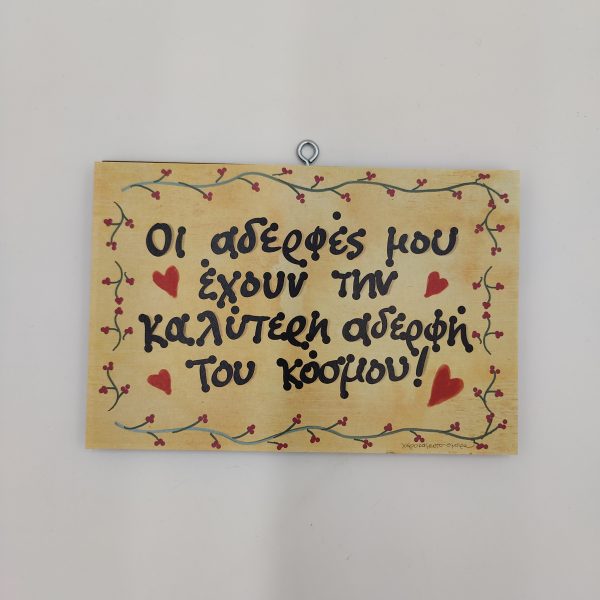 Οι αδερφές μου
έχουν την
καλύτερη αδερφή
του κόσμου!